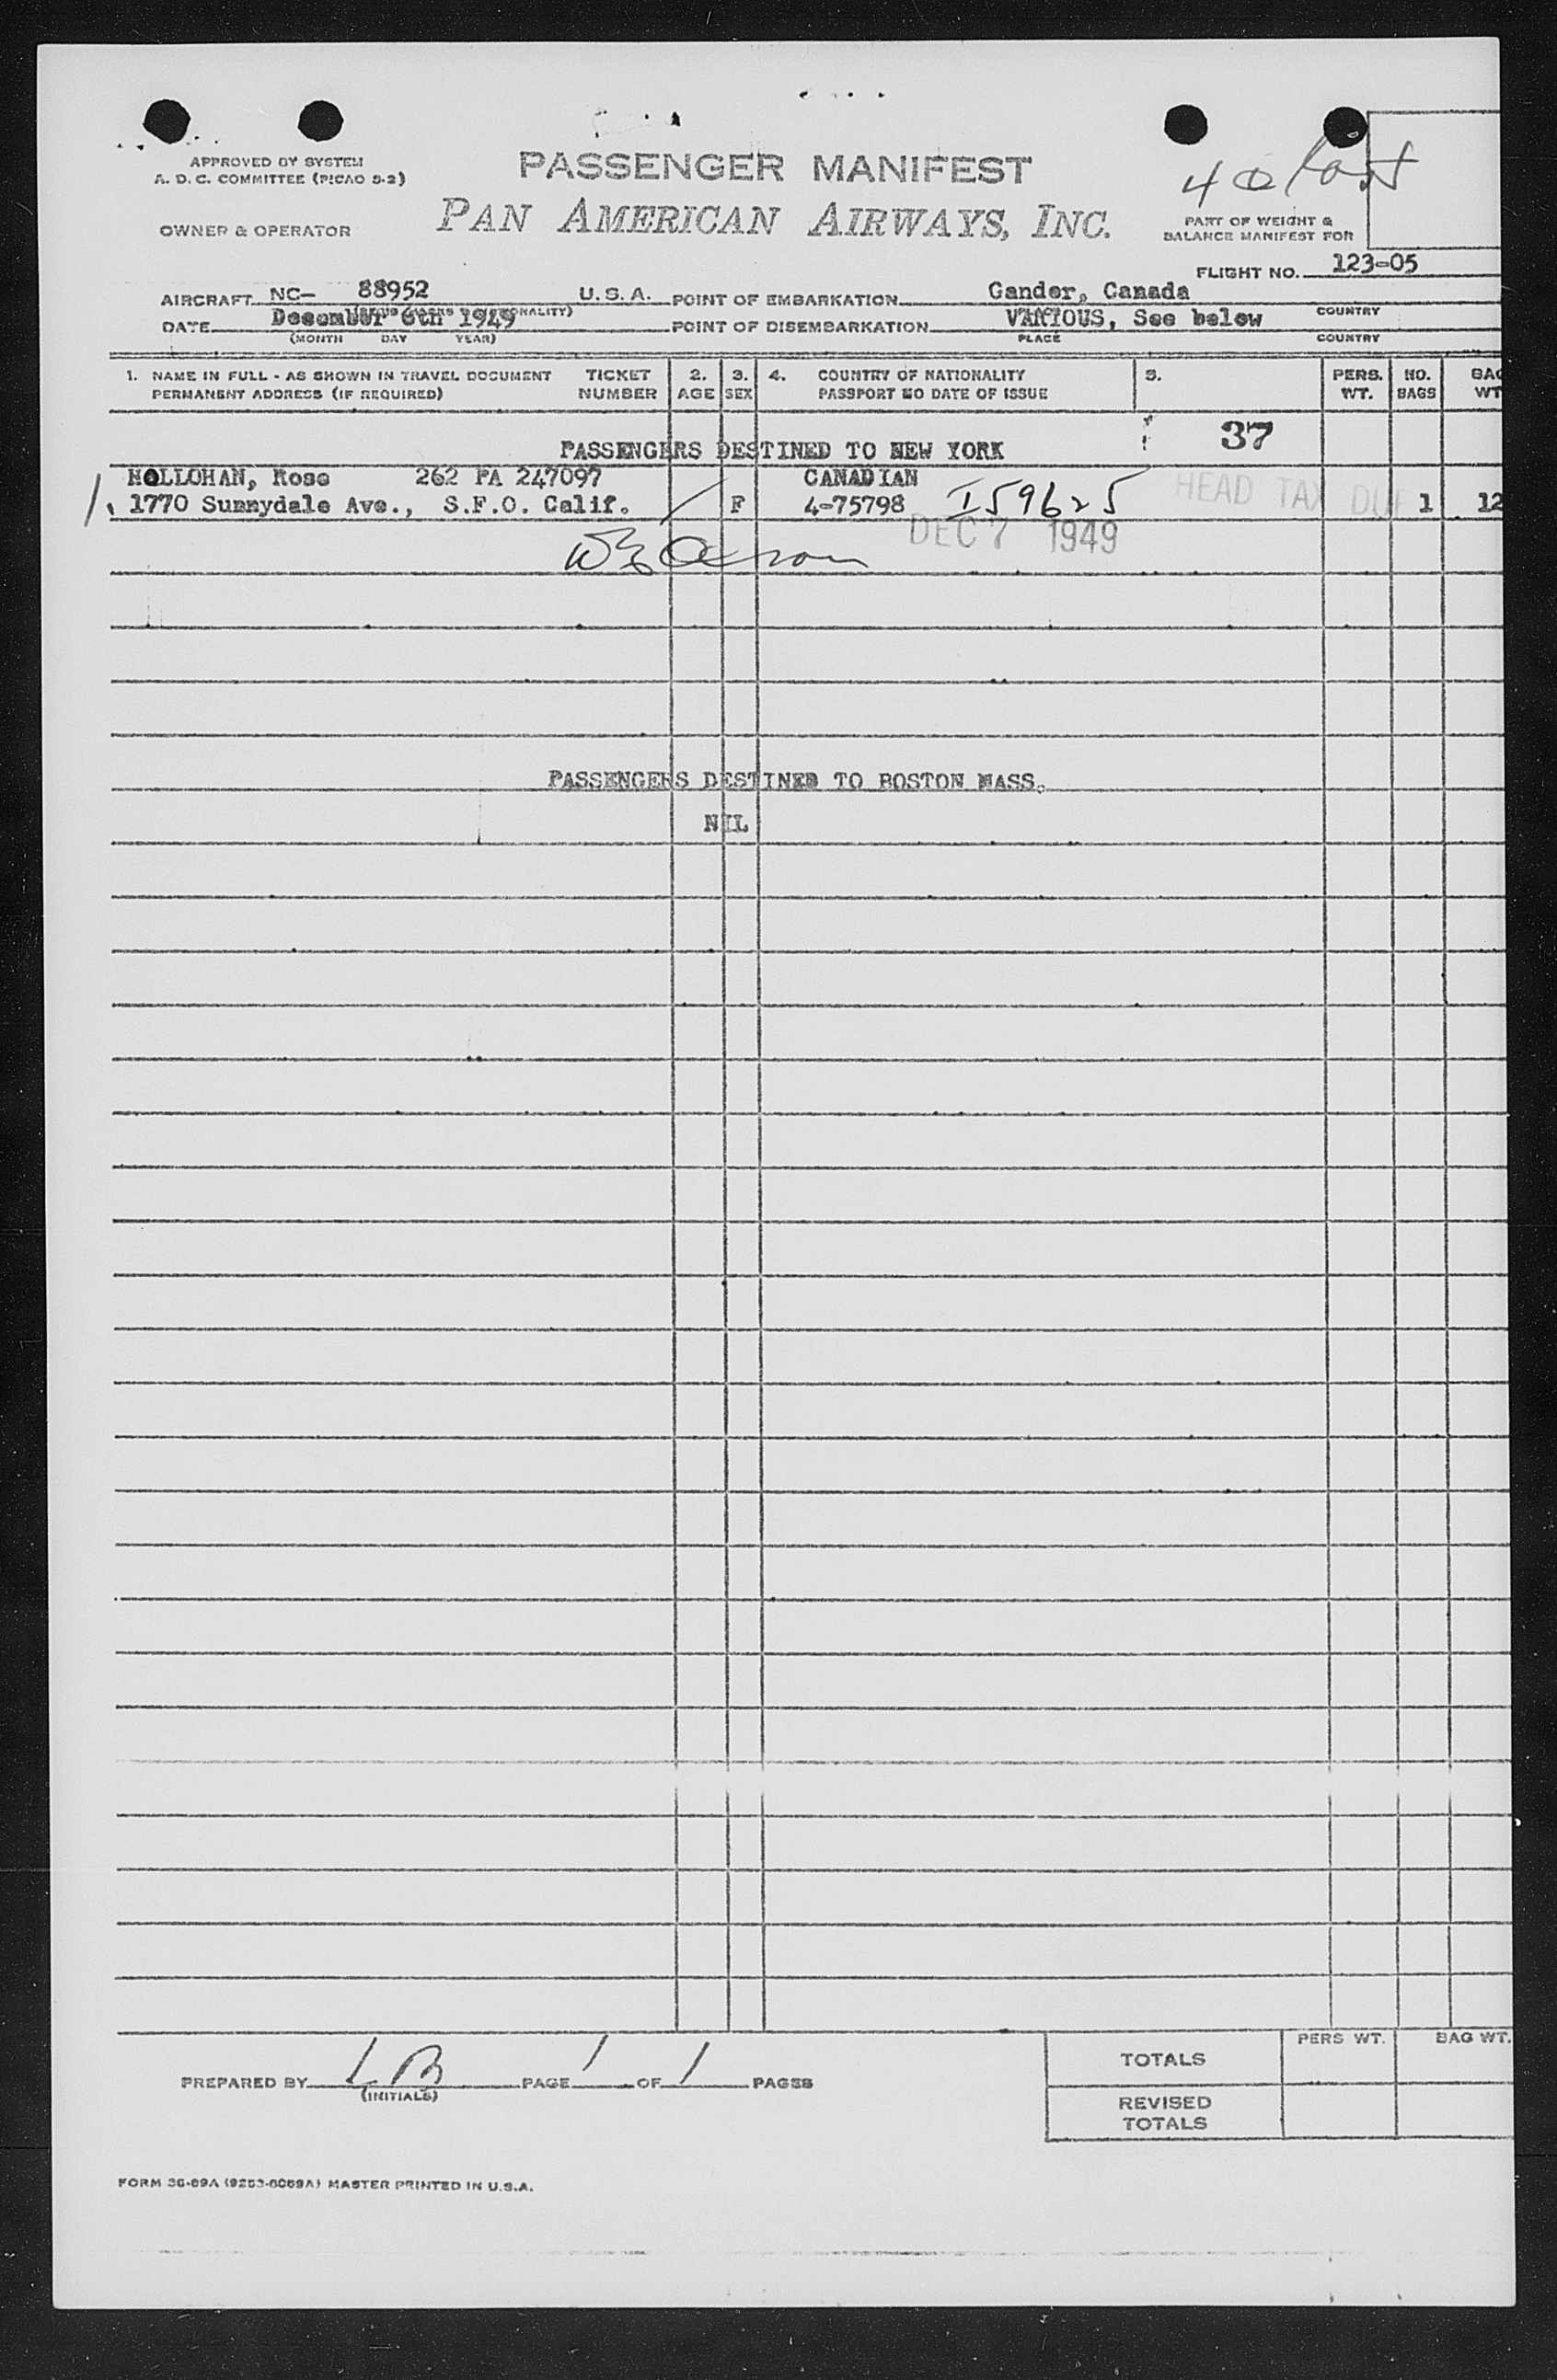 APPROVED BY SYSTEM
A. D. C. COMMITTEE (PICAO 9-2)
PASSENGER MANIFEST
OWNER & OPERATOR
PAN AMERICAN AIRWAYS, INC.
PART OF WEIGHT &
BALANCE MANIFEST FOR
FLIGHT NO. 123-05
AIRCRAFT NC- 88952 U.S.A. POINT OF EMBARKATION Gander, Canada
DATE December 6th 1949 POINT OF DISEMBARKATION VARIOUS, See below COUNTRY
(MONTH DAY YEAR) PLACE COUNTRY
1. NAME IN FULL - AS SHOWN IN TRAVEL DOCUMENT TICKET 2. 3. 4. COUNTRY OF NATIONALITY 5. PERS. NO. BAG
PERMANENT ADDRESS (IF REQUIRED) NUMBER AGE SEX PASSPORT NO DATE OF ISSUE WT. BAGS WT
37
PASSENGERS DESTINED TO NEW YORK
HOLLOHAN, Rose 262 PA 247097 CANADIAN
1 1770 Sunnydale Ave., S.F.O. Calif. F 4-75798 I 59625 HEAD TAX DUE 1 12
DEC 7 1949
PASSENGERS DESTINED TO BOSTON MASS.
NIL
PREPARED BY LB PAGE 1 OF 1 PAGES
(INITIALS)
PERS WT. BAG WT.
TOTALS
REVISED
TOTALS
FORM 36-69A (9253-6069A) MASTER PRINTED IN U.S.A.